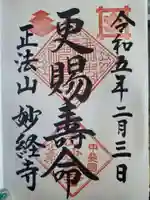 令和五年二月三日
更賜壽命
正法山 妙経寺